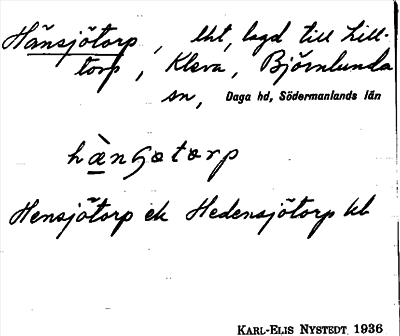 Hänsjötorp, lht, lagd till Lill-
torp, Kleva, Björnlunda
sn, Daga hd, Södermanlands län
Hensjötorp ek Hedensjötorp kb
KARL-ELIS NYSTEDT 1936